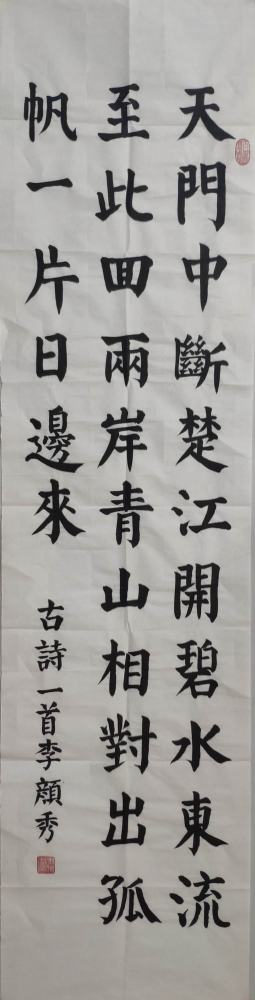 天門中斷楚江開碧水東流
至此回兩岸青山相對出孤
帆一片日邊來
古詩一首李顔秀